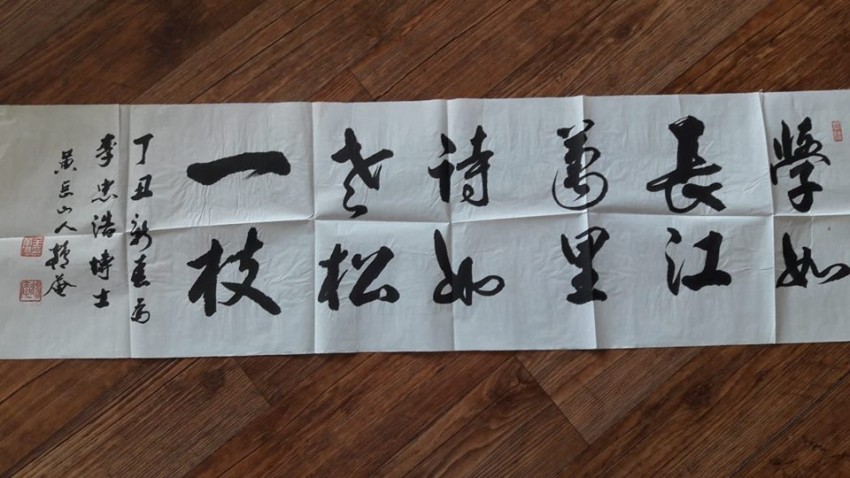 學如
長江
萬里
詩如
老松
一枝
丁丑新春為
李忠浩博士
黄岳山人